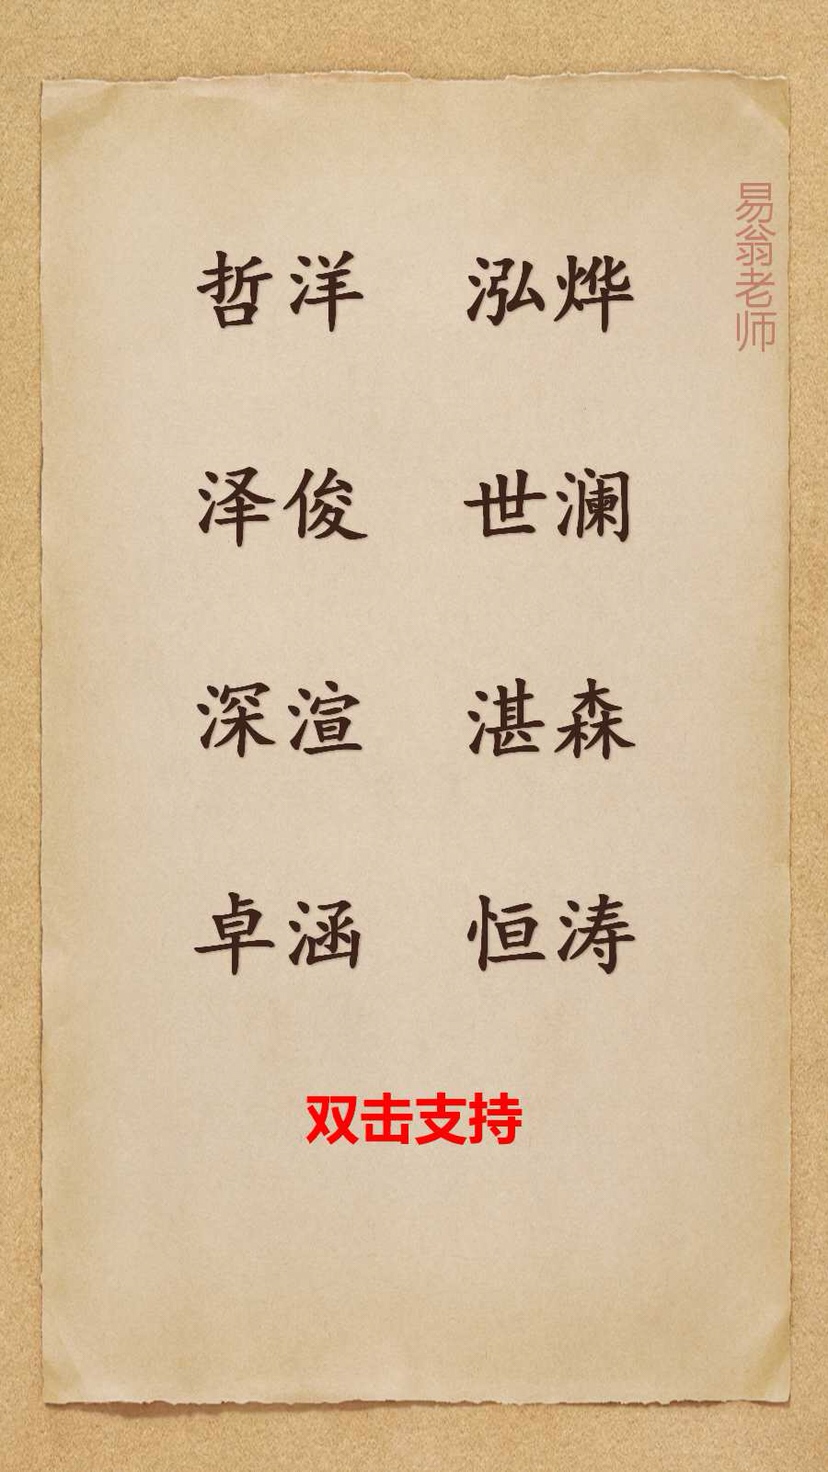 易翁老师
哲洋 泓烨
泽俊 世澜
深渲 湛森
卓涵 恒涛
双击支持